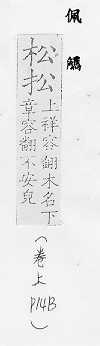 佩觿
松
上祥容翻木名下
章容翻不安皃
（卷上 P14B）